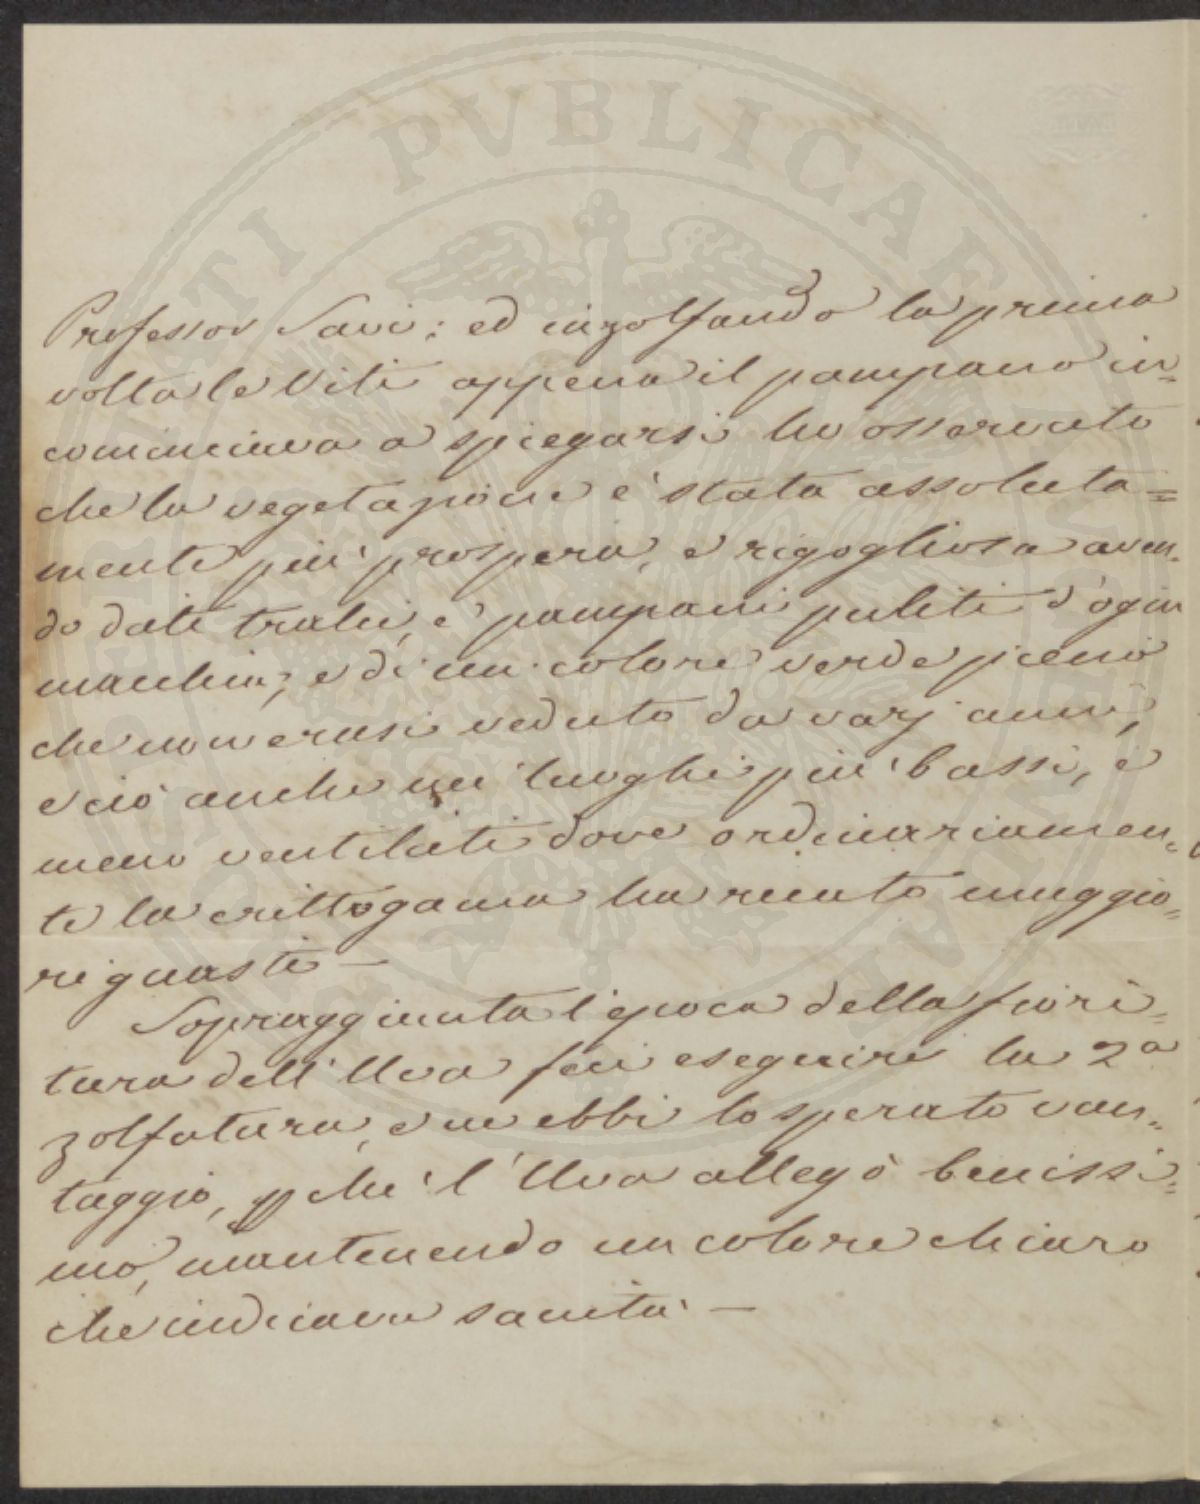 Professor Savi; ed inzolfando la prima
volta le Viti appena il pampano in=
cominciava a spiegarsi ho osservato
che la vegetazione è stata assoluta=
mente più prospera, e rigogliosa aven=
do dati tralci, e pampani puliti d'ogni
macchia, e di un colore verde pieno
che non erasi veduto da varj anni,
e ciò anche nei luoghi più bassi, e
meno ventilati dove ordinariamen=
te la crittogama ha recato maggio=
ri guasti —
Sopraggiunta l'epoca della fiori=
tura dell'Uva feci eseguire la 2a
zolfatura, e ne ebbi lo sperato van=
taggio, pchè l'Uva allegò benissi=
mo, mantenendo un colore chiaro
che indicava sanità —
PVBLICAE